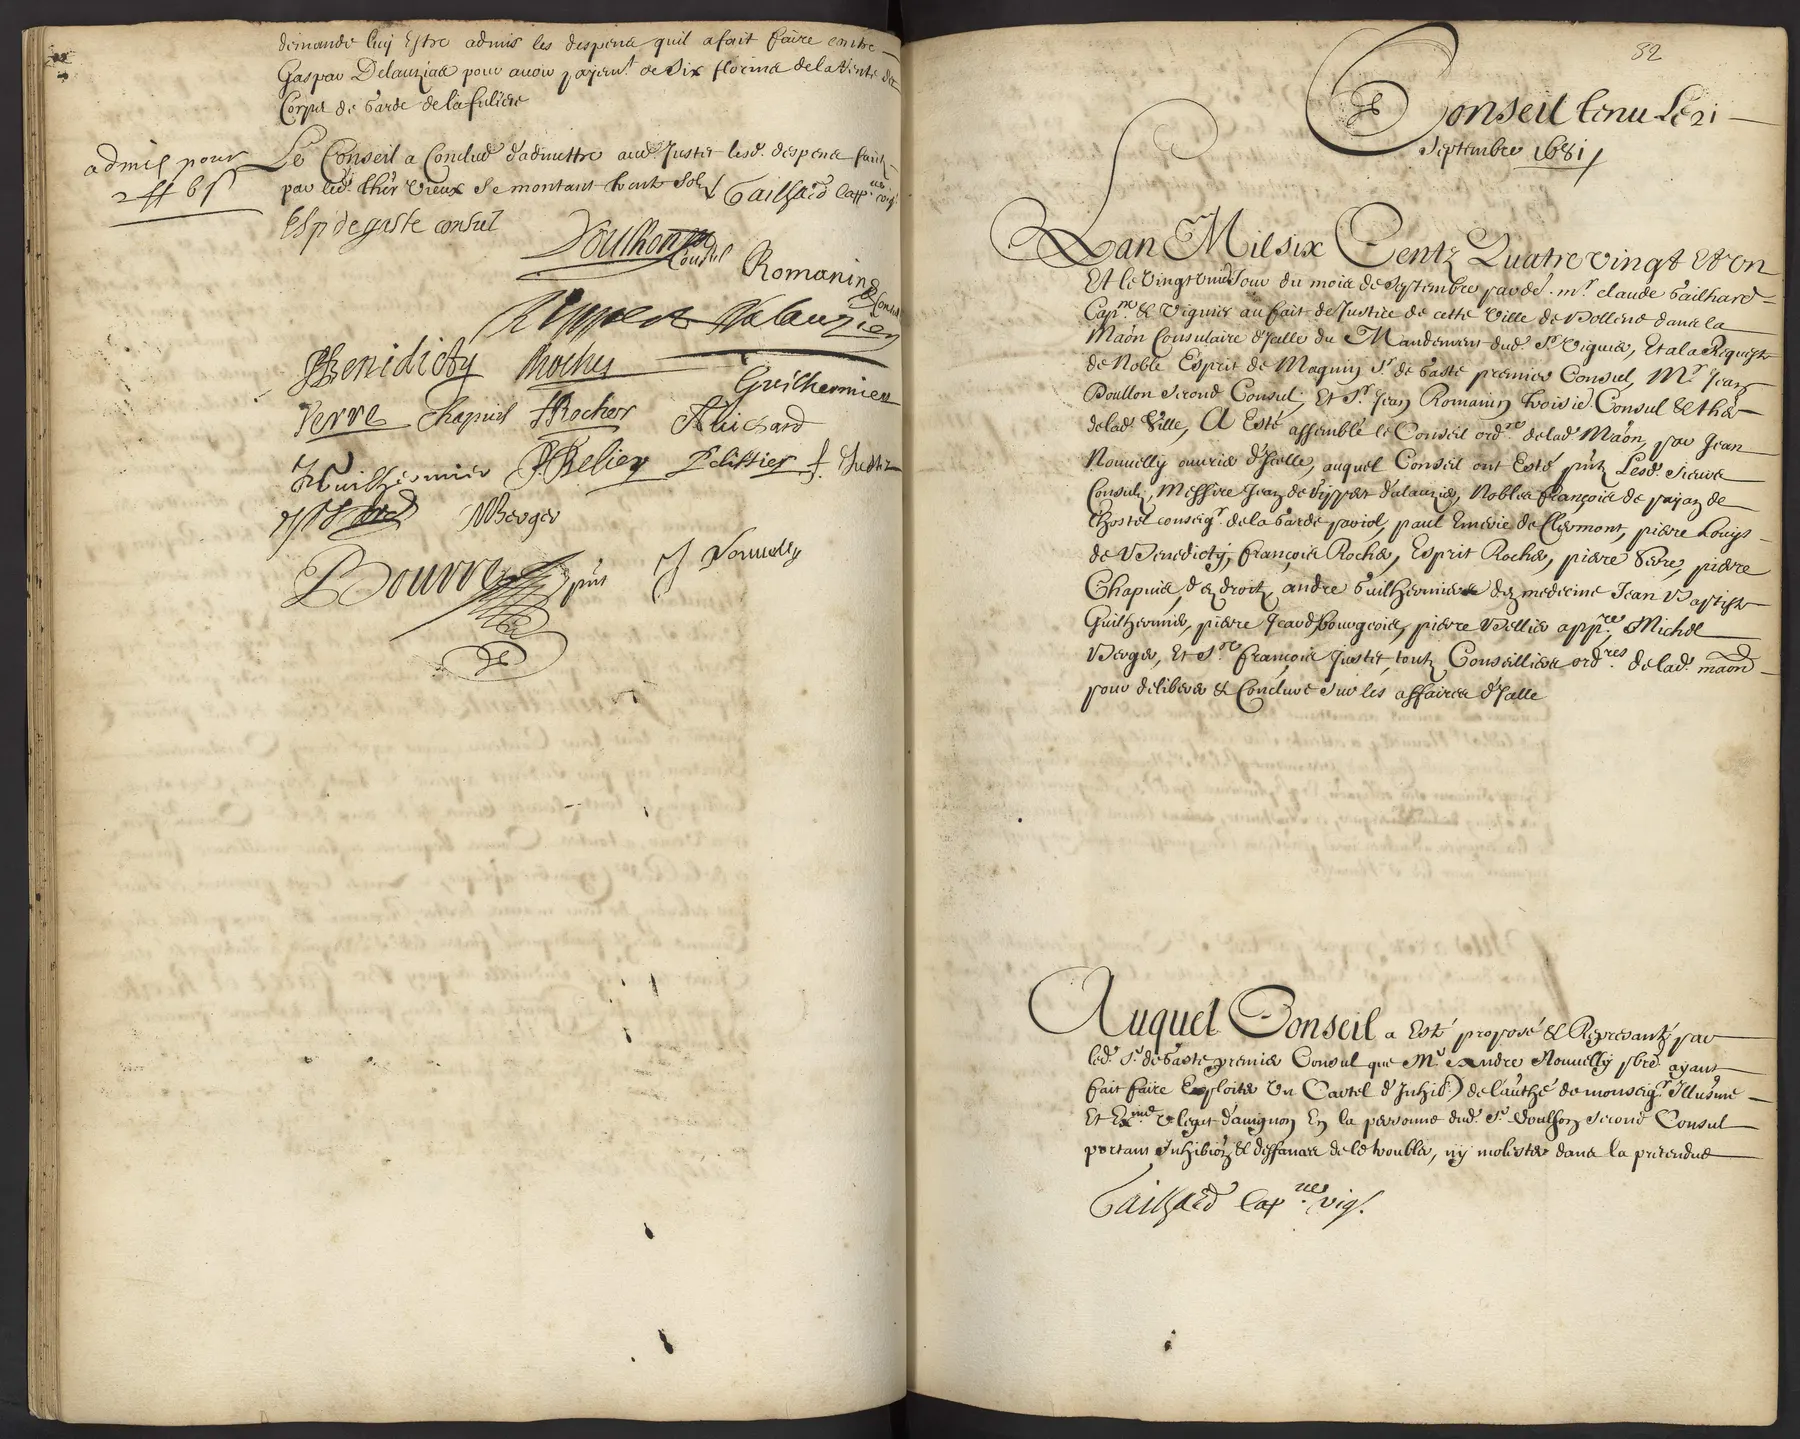 demande luy Estre admis les despens quil a fait faire contre
Gaspar Delauzias pour avoir payemt. de Six florins de la vente des
Corps de Garde de la
Le Conseil a Conclud d'admettre aud. Justet lesd. despens faits
par led. thier Vieux Se montant huit Solz Gailhard Capp.ne vig.
admis pour
2 ff 6 s
Esp de gaste consul
Doulhon
Consul
Romanin
Consul
Alauzier
Benidicty Rocher
Guilhermier
Serre Chapuis F Rocher Ricard
Guilhermier P. Belier Pelissier f. Justet
M Berger
Bourre pnt J Nouvelly
82
Conseil tenu Le 21
Septembre 1681
Lan Mil six Centz Quatre vingt Et Un
Et le vingt unie. Jour du mois de Septembre par de. mr. claude Gailhard
Capne. & Viguier au fait de Justice de cette Ville de Bollene dans la
Maon Consulaire d'Jcelle du Mandement dud. Sr. Viguier, Et a la Requeste
de Noble Esprit de Maquin Sr. de Gaste premier Consul, Mr. Jean
Doullon Second Consul, Et Sr. Jean Romanin troisie. Consul & ther
de lad. Ville, A Esté assemblé le Conseil ordre. de lad. Maon, par Jean
Nouvelly ouvrier d'Jcelle, auquel Conseil ont Esté pntz Lesd. Sieurs
Consulz, Messire Jean de Rippert d'alauzier, Nobles François de payan de
l'hostel conseigr. de la Garde pariol, paul Emerie de Clermont, pierre Louys
de Benedicty, françois Rocher, Esprit Rocher, pierre Serre, pierre
Chapuis, d. ez droitz, andre Guilhermier d. ez medecine Jean Baptiste
Guilhermier, pierre Jcard bourgeois, pierre Bellier appre., Michel
Berger, Et Sre. françois Justet, toutz Conseilliers ordres. de lad. maon
pour deliberer & Conclure Sur les affaires d'Jcelle
Auquel Conseil a Esté proposé & Represanté par
led. Sr. de Gaste premier Consul que Mr. Andre Nouvelly pbre ayant
fait faire Exploiter Un Cartel d'Inhib.on de l'authé de monseigr. Illusme
Et Exme. V. legat d'avignon En la personne dud. Sr. Doulhon Second Consul
portant Inhibion & deffances de le troubler, ny molester dans la pretendue
Gailhard Cappnes. vig.